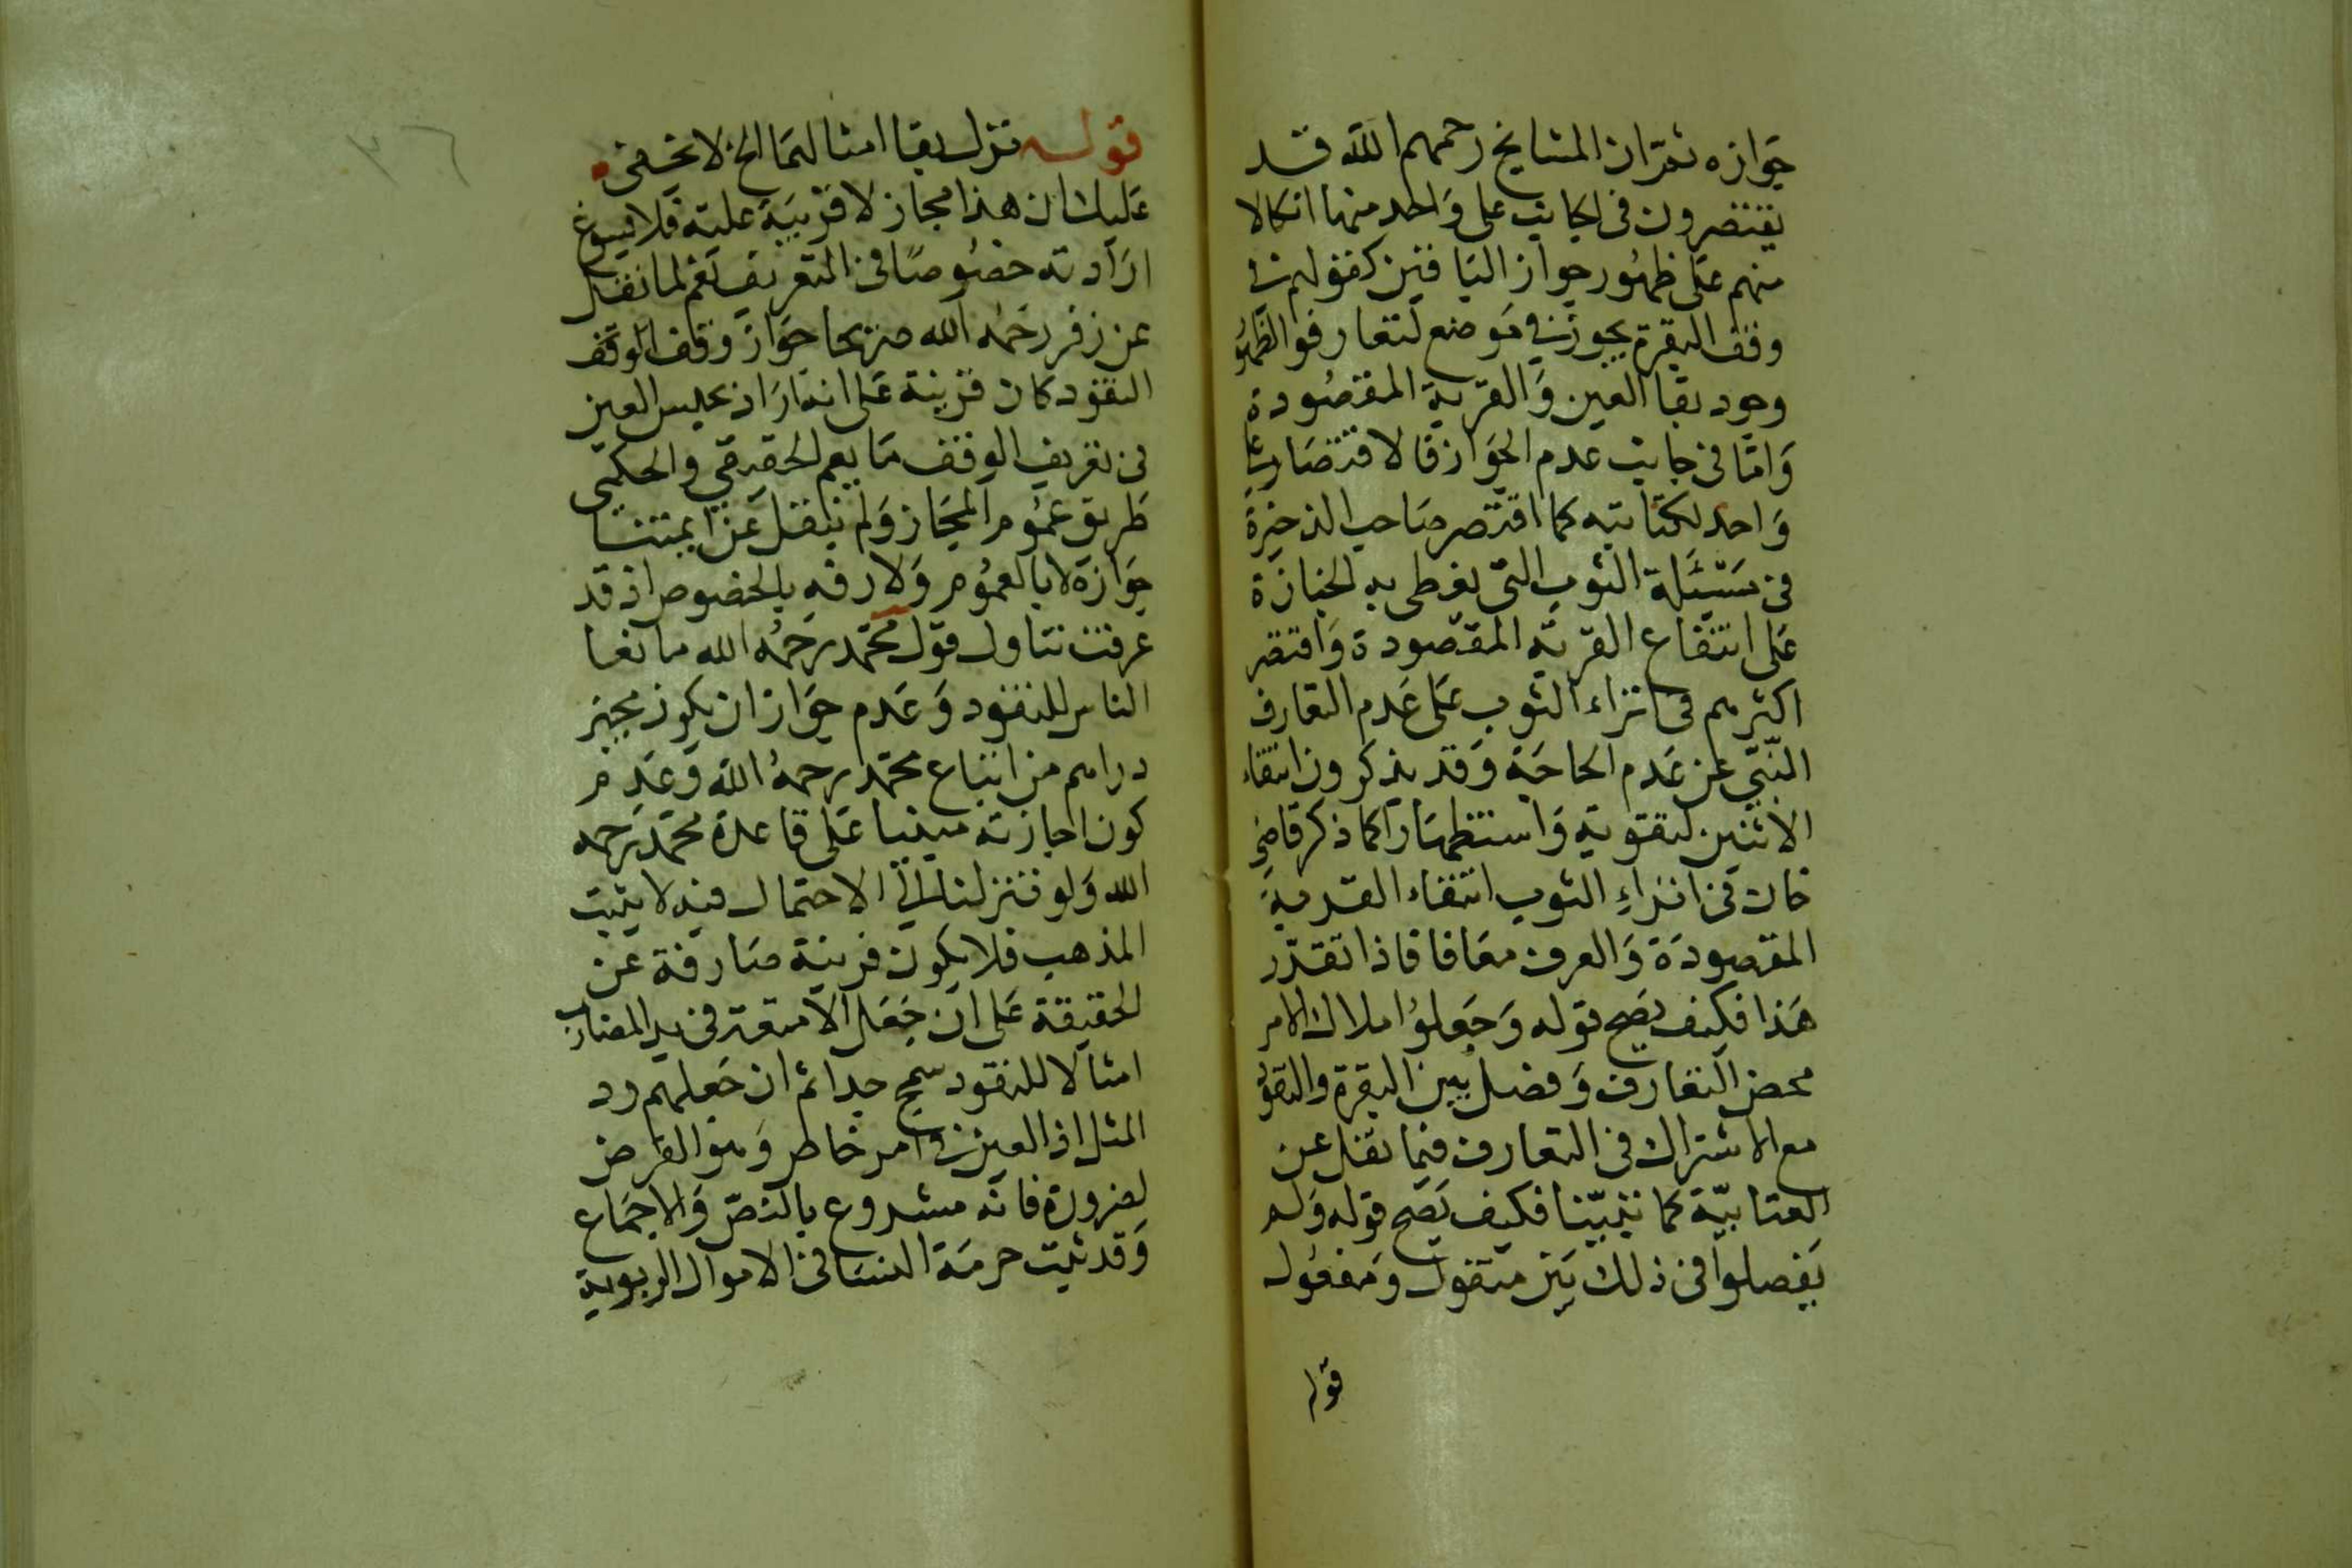 جوازه ثمّ ان المشايخ رحمهم الله قد
يقتصرون فى الجانب على واحد منها اتكالا
منهم على ظهور جواز الباقين كقولهم فى
وقف البقرة يجوز فى موضع لتعارفوا لظهور
وجود بقا العين والقربة المقصودة
وامّا فى جانب عدم الجواز فالاقتصار على
واحد لكفايته كما اقتصر صاحب الذخيرة
فى مسئلة الثوب التى يغطى به الجنازة
على انتفاع القربة المقصودة واقتصر
اكثرهم فى انزاء الثوب على عدم التعارف
النبّى عن عدم الحاجة وقد يذكرون انتفاء
الاثنين لتقوية واستظهارا كما ذكر قاضى
خان فى انزاء الثوب انتفاء القدمية
المقصودة والعرف معافا فاذا تقدّر
هذا فكيف يصح قوله وجعلوا ملاك الامر
محض التعارف وفصل بين البقرة والنقو
مع الاشتراك فى التعارف فيما نقل عن
العتابيّة كما نبّينا فكيف يصح قوله ولم
يفصلوا فى ذلك بين منقول ومنقول
قوله
قوله تنزل بقا امثالها الخ لا يخفى
عليك ان هذا مجاز لا قرينة عليه فلا يسوغ
ارادته خصوصا فى التعريف نعم لما نقل
عن زفر رحمه الله صريحا جواز وقف الوقف
النقود كان قرينة على انه اراد بحبس العين
فى تعريف الوقف ما يعم الحقيقي والحكمى
طريق عموم المجاز ولم ينقل عن ايمتنا
جوازه لا بالعموم ولا رفه بالخصوص اذ قد
عرفت تناول قول محمّد رحمه الله ما تعا
الناس للنقود وعدم جواز ان يكون مجيز
دراهم من اتباع محمّد رحمه الله وعدم
كون اجازته مبنيا على قاعدة محمّد رحمه
الله ولو فتنزلنا الى الاحتمال فيه لا يثبت
المذهب فلا يكون قرينة صارفة عن
الحقيقة على ان جعل الامتعة فى يد المضارب
امثالا للنقود سمج جدا ثم ان جعلهم رد
المثل اذ العين فى امر خاطر وهو القرض
لضرورة فانه مشروع بالنصّ والاجماع
وقد ثبت حرمة النسا فى الاموال الربوية
٣٦